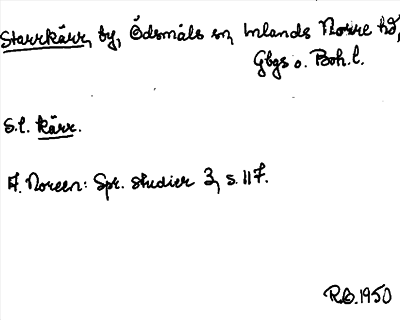 Starrkärr, by, Ödsmåls sn, Inlands Norre hd,
Gbgs o. Boh. l.
S.l. kärr.
A. Noreen: Spr. studier 3, s. 117.
R.B. 1950